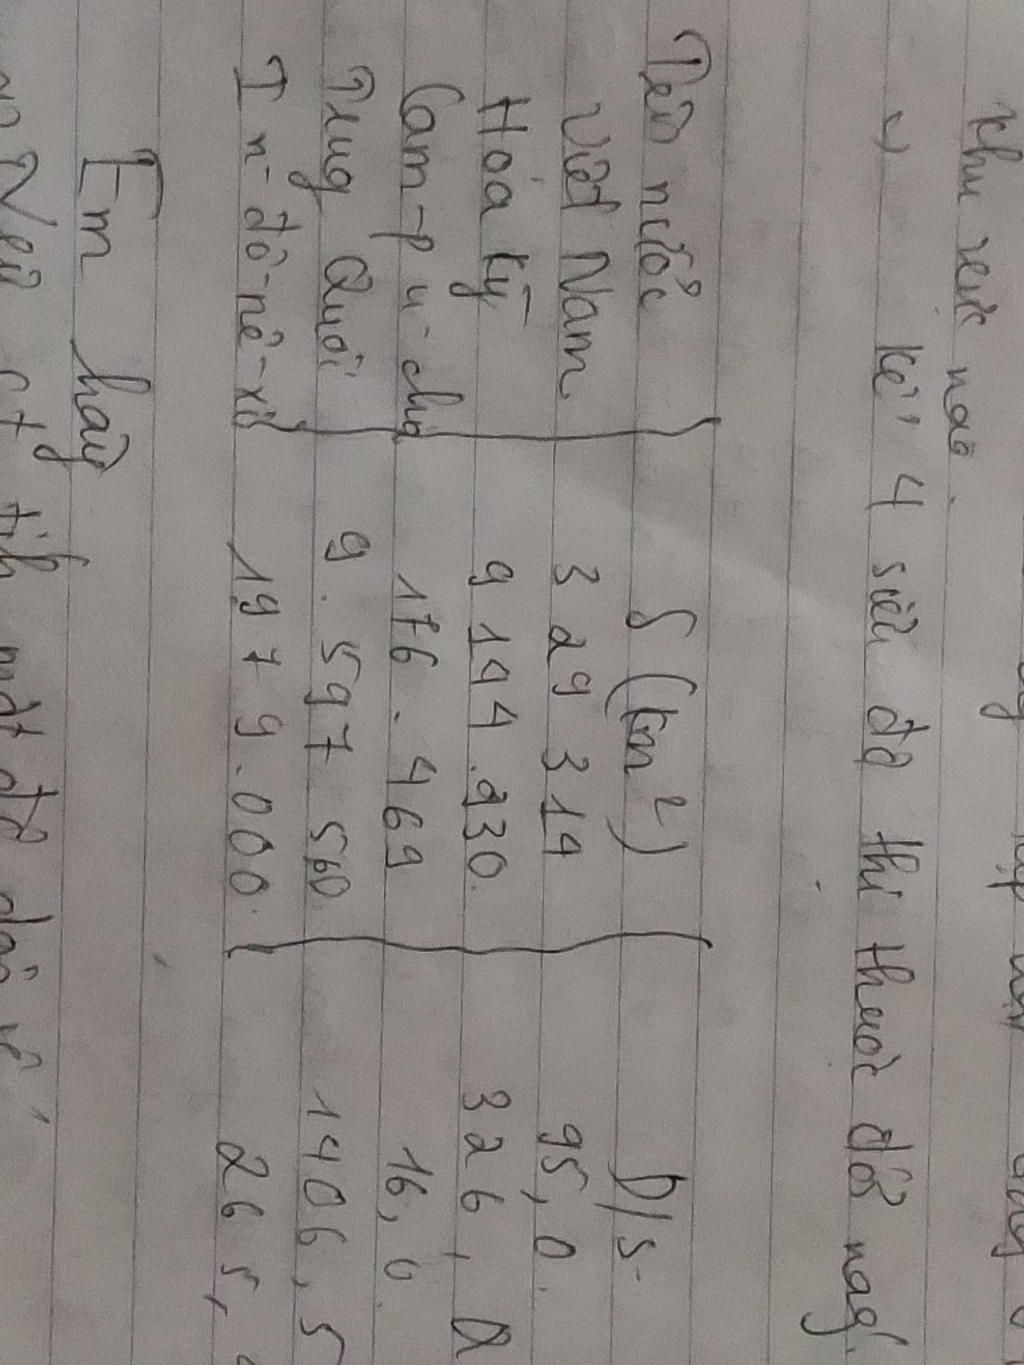 khu vực nào.
kể 4 siêu đô thị thuộc đới nóng.
Tên nước S (km²) D/s.
Việt Nam 329 314 95,0.
Hoa Kỳ 9 144.930.
Cam-pu-chia 176.469 16,0.
Trung Quốc 9.597 560. 1406,5
In-đô-nê-xi 1979.000. 265,
Em hãy
tính mật độ dân